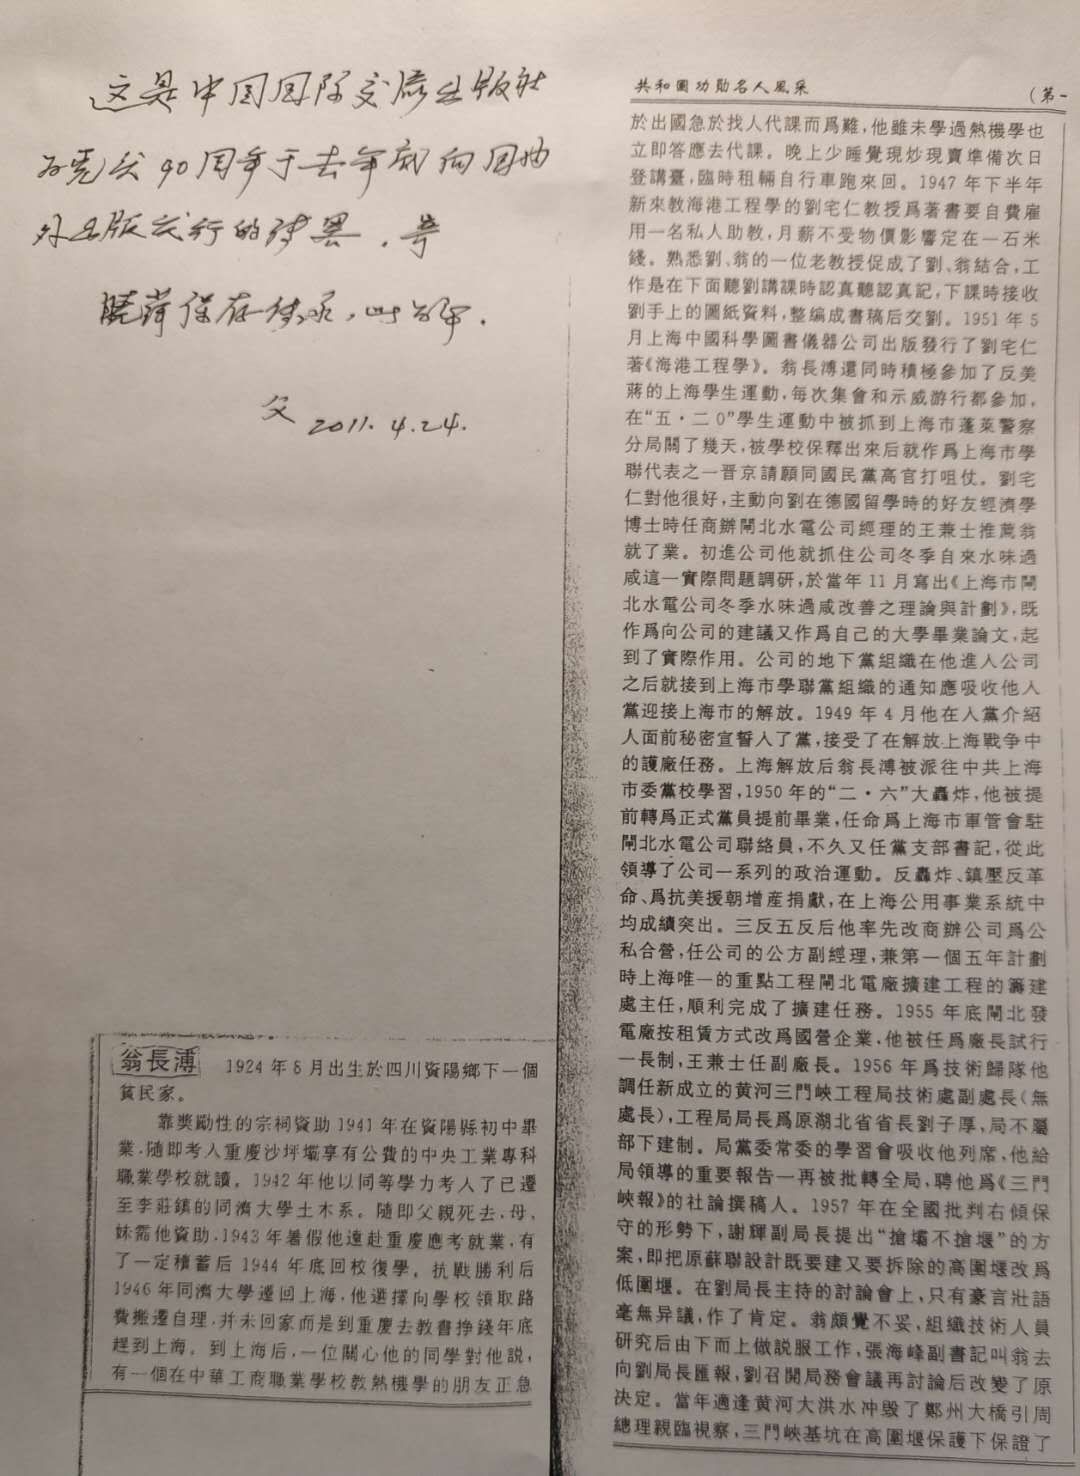 这是中国国际交流出版社
为党庆90周年于去年底向国内
外出版发行的
晓萍保存传承,此留念.
父 2011.4.24.
翁長溥 1924年8月出生於四川資陽鄉下一個
貧民家。
靠獎勵性的宗祠資助1941年在資陽縣初中畢
業,隨即考人重慶沙坪壩享有公費的中央工業專科
職業學校就讀。1942年他以同等學力考人了已遷
至李莊鎮的同濟大學土木系。隨即父親死去,母、
妹需他資助,1943年暑假他遠赴重慶應考就業,有
了一定積蓄后1944年底回校復學。抗戰勝利后
1946年同濟大學遷回上海,他選擇向學校領取路
費搬遷自理,并未回家而是到重慶去教書掙錢年底
趕到上海。到上海后,一位關心他的同學對他説,
有一個在中華工商職業學校教熱機學的朋友正急
共和國功勛名人風采 (第一
於出國急於找人代課而爲難,他雖未學過熱機學也
立即答應去代課。晚上少睡覺現炒現賣準備次日
登講臺,臨時租輛自行車跑來回。1947年下半年
新來教海港工程學的劉宅仁教授爲著書要自費雇
用一名私人助教,月薪不受物價影響定在一石米
錢。熟悉劉、翁的一位老教授促成了劉、翁結合,工
作是在下面聽劉講課時認真聽認真記,下課時接收
劉手上的圖紙資料,整編成書稿后交劉。1951年5
月上海中國科學圖書儀器公司出版發行了劉宅仁
著《海港工程學》。翁長溥還同時積極參加了反美
蔣的上海學生運動,每次集會和示威游行都參加,
在“五·二0”學生運動中被抓到上海市蓬萊警察
分局關了幾天,被學校保釋出來后就作爲上海市學
聯代表之一晋京請願同國民黨高官打咀仗。劉宅
仁對他很好,主動向劉在德國留學時的好友經濟學
博士時任商辦閘北水電公司經理的王兼士推薦翁
就了業。初進公司他就抓住公司冬季自來水味過
咸這一實際問題調研,於當年11月寫出《上海市閘
北水電公司冬季水味過咸改善之理論與計劃》,既
作爲向公司的建議又作爲自己的大學畢業論文,起
到了實際作用。公司的地下黨組織在他進人公司
之后就接到上海市學聯黨組織的通知應吸收他人
黨迎接上海市的解放。1949年4月他在人黨介紹
人面前秘密宣誓人了黨,接受了在解放上海戰争中
的護廠任務。上海解放后翁長溥被派往中共上海
市委黨校學習,1950年的“二·六”大轟炸,他被提
前轉爲正式黨員提前畢業,任命爲上海市軍管會駐
閘北水電公司聯絡員,不久又任黨支部書記,從此
領導了公司一系列的政治運動。反轟炸、鎮壓反革
命、爲抗美援朝增産捐獻,在上海公用事業系統中
均成績突出。三反五反后他率先改商辦公司爲公
私合營,任公司的公方副經理,兼第一個五年計劃
時上海唯一的重點工程閘北電廠擴建工程的籌建
處主任,順利完成了擴建任務。1955年底閘北發
電廠按租賃方式改爲國營企業,他被任爲廠長試行
一長制,王兼士任副廠長。1956年爲技術歸隊他
調任新成立的黄河三門峽工程局技術處副處長(無
處長),工程局局長爲原湖北省省長劉子厚,局不屬
部下建制。局黨委常委的學習會吸收他列席,他給
局領導的重要報告一再被批轉全局,聘他爲《三門
峽報》的社論撰稿人。1957年在全國批判右傾保
守的形勢下,謝輝副局長提出“搶壩不搶堰”的方
案,即把原蘇聯設計既要建又要拆除的高圍堰改爲
低圍堰。在劉局長主持的討論會上,只有豪言壯語
毫無异議,作了肯定。翁頗覺不妥,組織技術人員
研究后由下而上做説服工作,張海峰副書記叫翁去
向劉局長匯報,劉召開局務會議再討論后改變了原
决定。當年適逢黄河大洪水冲毀了鄭州大橋引周
總理親臨視察,三門峽基坑在高圍堰保護下保證了